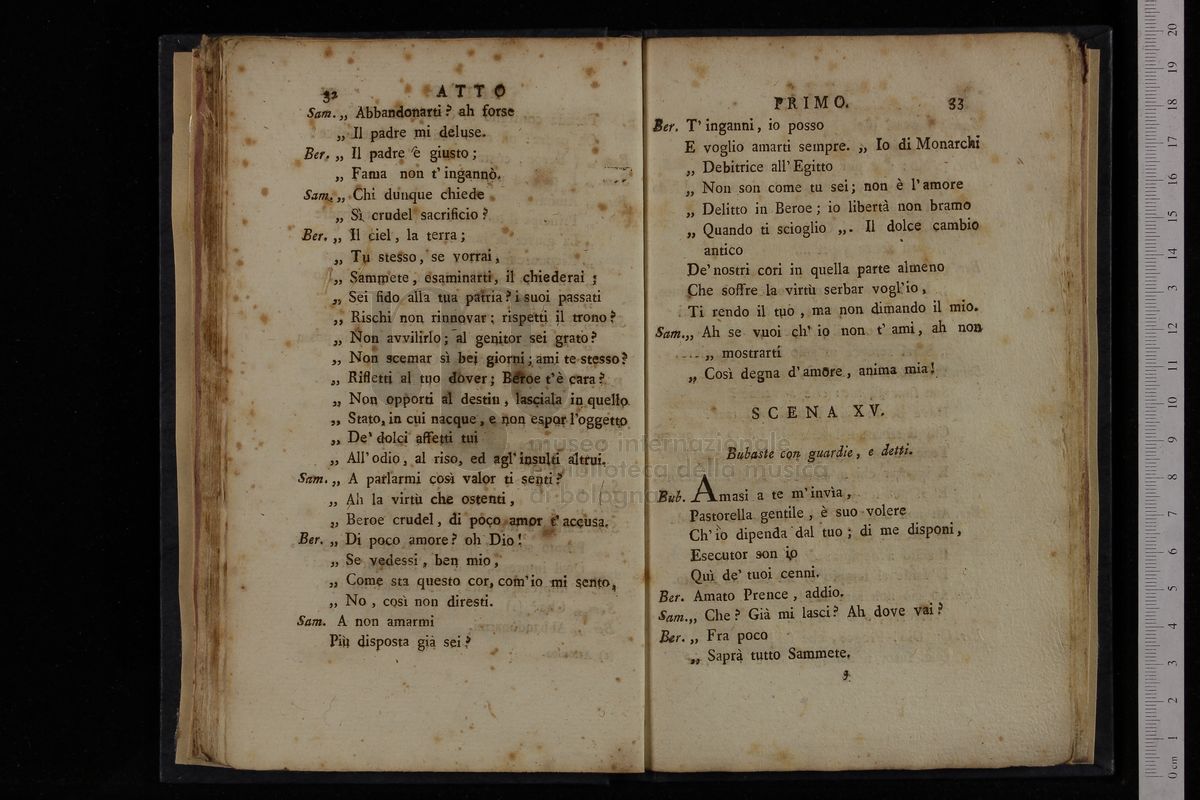 32 ATTO
Sam. „ Abbandonarti? ah forse
„ Il padre mi deluse.
Ber. „ Il padre è giusto;
„ Fama non t'ingannò.
Sam. „ Chi dunque chiede
„ Sì crudel sacrificio?
Ber. „ Il ciel, la terra;
„ Tu stesso, se vorrai,
„ Sammete, esaminarti, il chiederai;
„ Sei fido alla tua patria? i suoi passati
„ Rischi non rinnovar; rispetti il trono?
„ Non avvilirlo; al genitor sei grato?
„ Non scemar sì bei giorni; ami te stesso?
„ Rifletti al tuo dover; Beroe t'è cara?
„ Non opporti al destin, lasciala in quello
„ Stato, in cui nacque, e non espor l'oggetto
„ De' dolci affetti tui
„ All'odio, al riso, ed agl'insulti altrui.
Sam. „ A parlarmi così valor ti senti?
„ Ah la virtù che ostenti,
„ Beroe crudel, di poco amor t'accusa.
Ber. „ Di poco amore? oh Dio!
„ Se vedessi, ben mio,
„ Come sta questo cor, com'io mi sento,
„ No, così non diresti.
Sam. A non amarmi
Più disposta già sei?
PRIMO. 33
Ber. T'inganni, io posso
E voglio amarti sempre. „ Io di Monarchi
„ Debitrice all'Egitto
„ Non son come tu sei; non è l'amore
„ Delitto in Beroe; io libertà non bramo
„ Quando ti scioglio „. Il dolce cambio
antico
De' nostri cori in quella parte almeno
Che soffre la virtù serbar vogl'io,
Ti rendo il tuo, ma non dimando il mio.
Sam. „ Ah se vuoi ch'io non t'ami, ah non
„ mostrarti
„ Così degna d'amore, anima mia!
SCENA XV.
Bubaste con guardie, e detti.
Bub. Amasi a te m'invia,
Pastorella gentile, è suo volere
Ch'io dipenda dal tuo; di me disponi,
Esecutor son io
Quì de' tuoi cenni.
Ber. Amato Prence, addio.
Sam. „ Che? Già mi lasci? Ah dove vai?
Ber. „ Fra poco
„ Saprà tutto Sammete.
museo internazionale
e biblioteca della musica
di bologna
0 cm 1 2 3 4 5 6 7 8 9 10 11 12 13 14 15 16 17 18 19 20